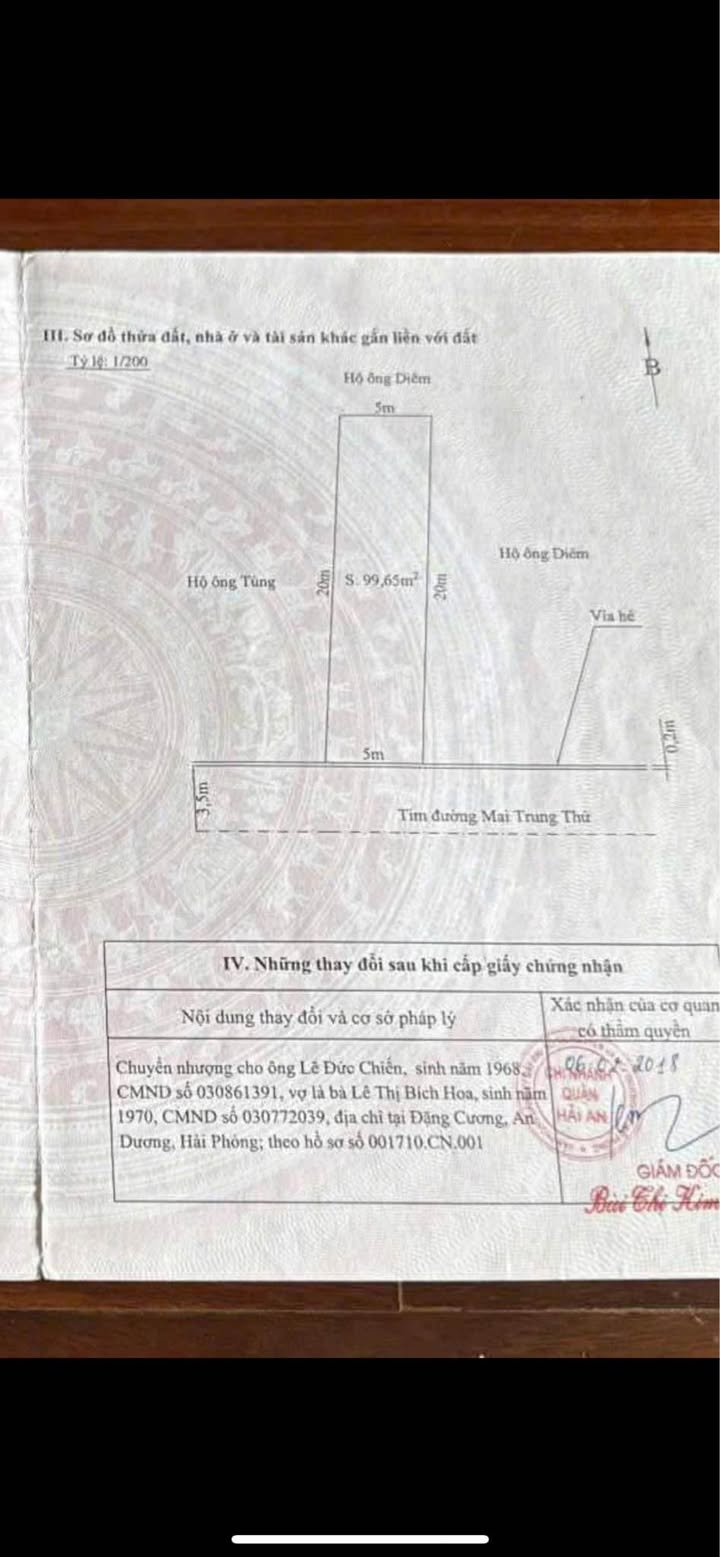 III. Sơ đồ thửa đất, nhà ở và tài sản khác gắn liền với đất
Tỷ lệ: 1/200
B
Hộ ông Diêm
5m
Hộ ông Diêm
Hộ ông Tùng
20m
S. 99,65m²
20m
Vỉa hè
0,2m
5m
3,5m
Tim đường Mai Trung Thứ
IV. Những thay đổi sau khi cấp giấy chứng nhận
Nội dung thay đổi và cơ sở pháp lý
Xác nhận của cơ quan
có thẩm quyền
Chuyển nhượng cho ông Lê Đức Chiến, sinh năm 1968,
CMND số 030861391, vợ là bà Lê Thị Bích Hoa, sinh năm
1970, CMND số 030772039, địa chỉ tại Đặng Cương, An
Dương, Hải Phòng; theo hồ sơ số 001710.CN.001
06-02-2018
CHI NHÁNH
QUẬN
HẢI AN
GIÁM ĐỐC
Bùi Thị Kim